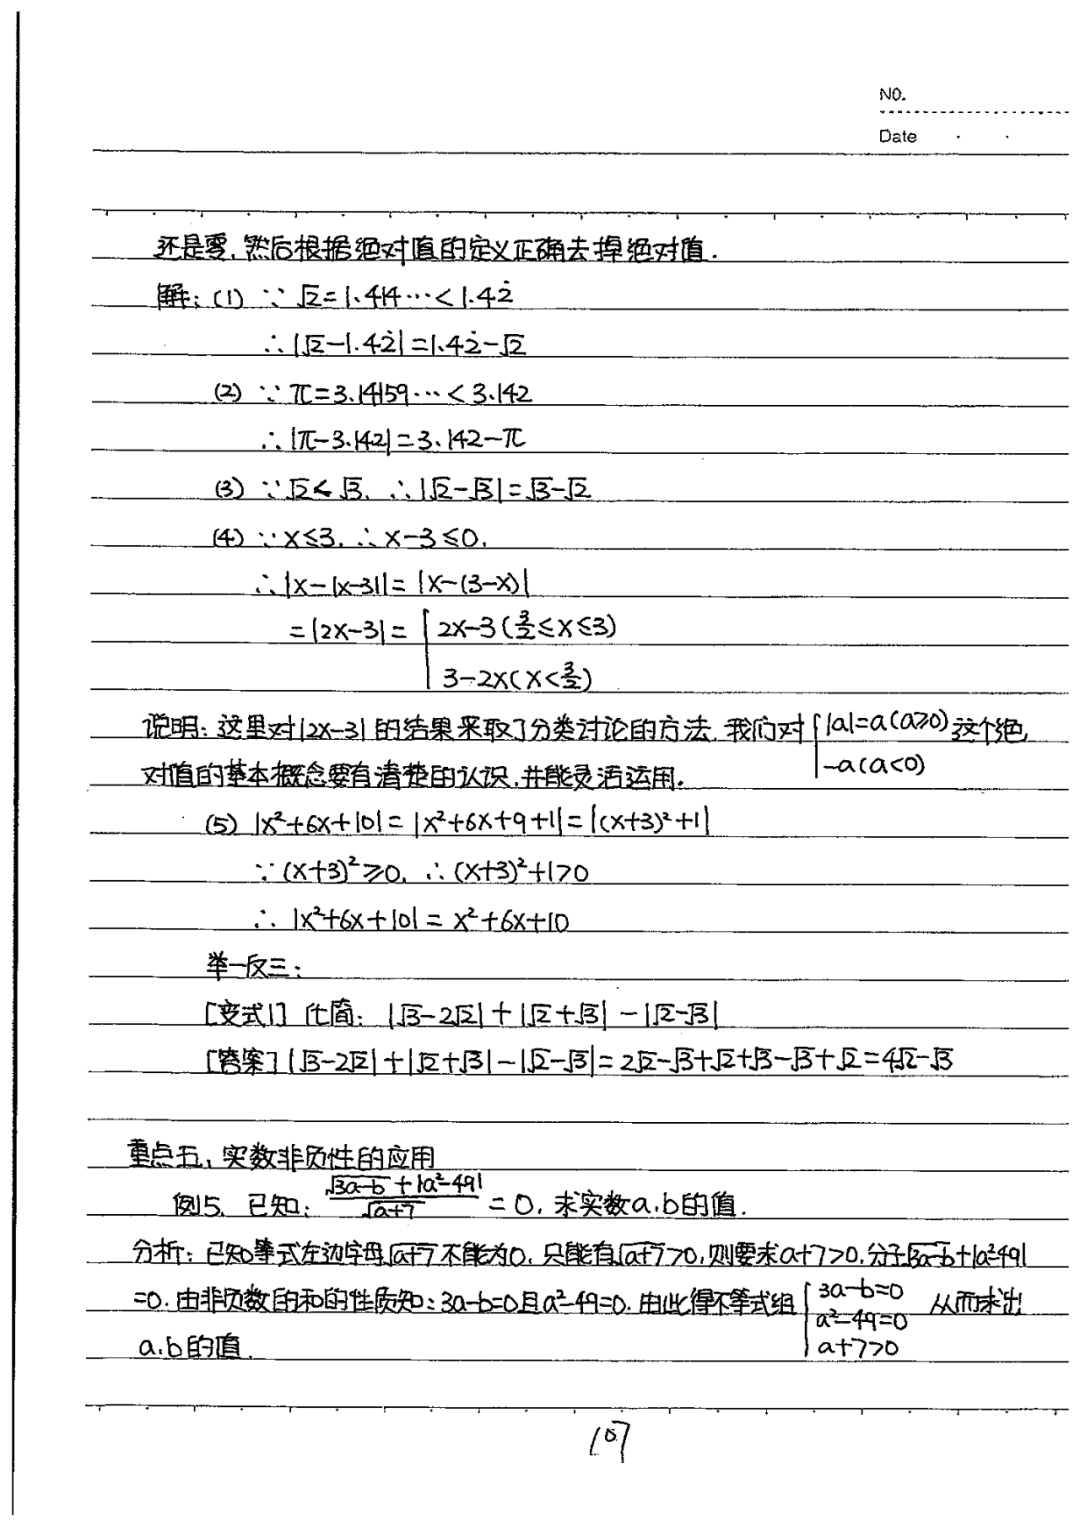 NO.
Date
还是零,然后根据绝对值的定义正确去掉绝对值.
解:(1) ∵ √2=1.414…<1.42̇
∴|√2-1.42̇|=1.42̇-√2
(2) ∵ π=3.14159…<3.142
∴|π-3.142|=3.142-π
(3) ∵√2<√3, ∴|√2-√3|=√3-√2
(4) ∵x≤3, ∴x-3≤0,
∴|x-|x-3||=|x-(3-x)|
=|2x-3|= 2x-3(3/2≤x≤3)
3-2x(x<3/2)
说明:这里对|2x-3|的结果采取了分类讨论的方法,我们对{|a|=a(a≥0)这个绝
-a(a<0)
对值的基本概念要有清楚的认识,并能灵活运用.
(5) |x²+6x+10|=|x²+6x+9+1|=|(x+3)²+1|
∵(x+3)²≥0, ∴(x+3)²+1>0
∴ |x²+6x+10|=x²+6x+10
举一反三:
[变式1] 化简: |√3-2√2|+|√2+√3|-|√2-√3|
[答案]|√3-2√2|+|√2+√3|-|√2-√3|=2√2-√3+√2+√3-√3+√2=4√2-√3
重点五、实数非负性的应用
例5、已知: (√(3a-b)+|a²-49|)/√(a+7)=0,求实数a,b的值.
分析:已知等式左边字母√(a+7)不能为0,只能有√(a+7)>0,则要求a+7>0,分子√(3a-b)+|a²-49|
=0,由非负数的和的性质知:3a-b=0且a²-49=0,由此得不等式组{3a-b=0 从而求出
a²-49=0
a+7>0
a,b的值.
107